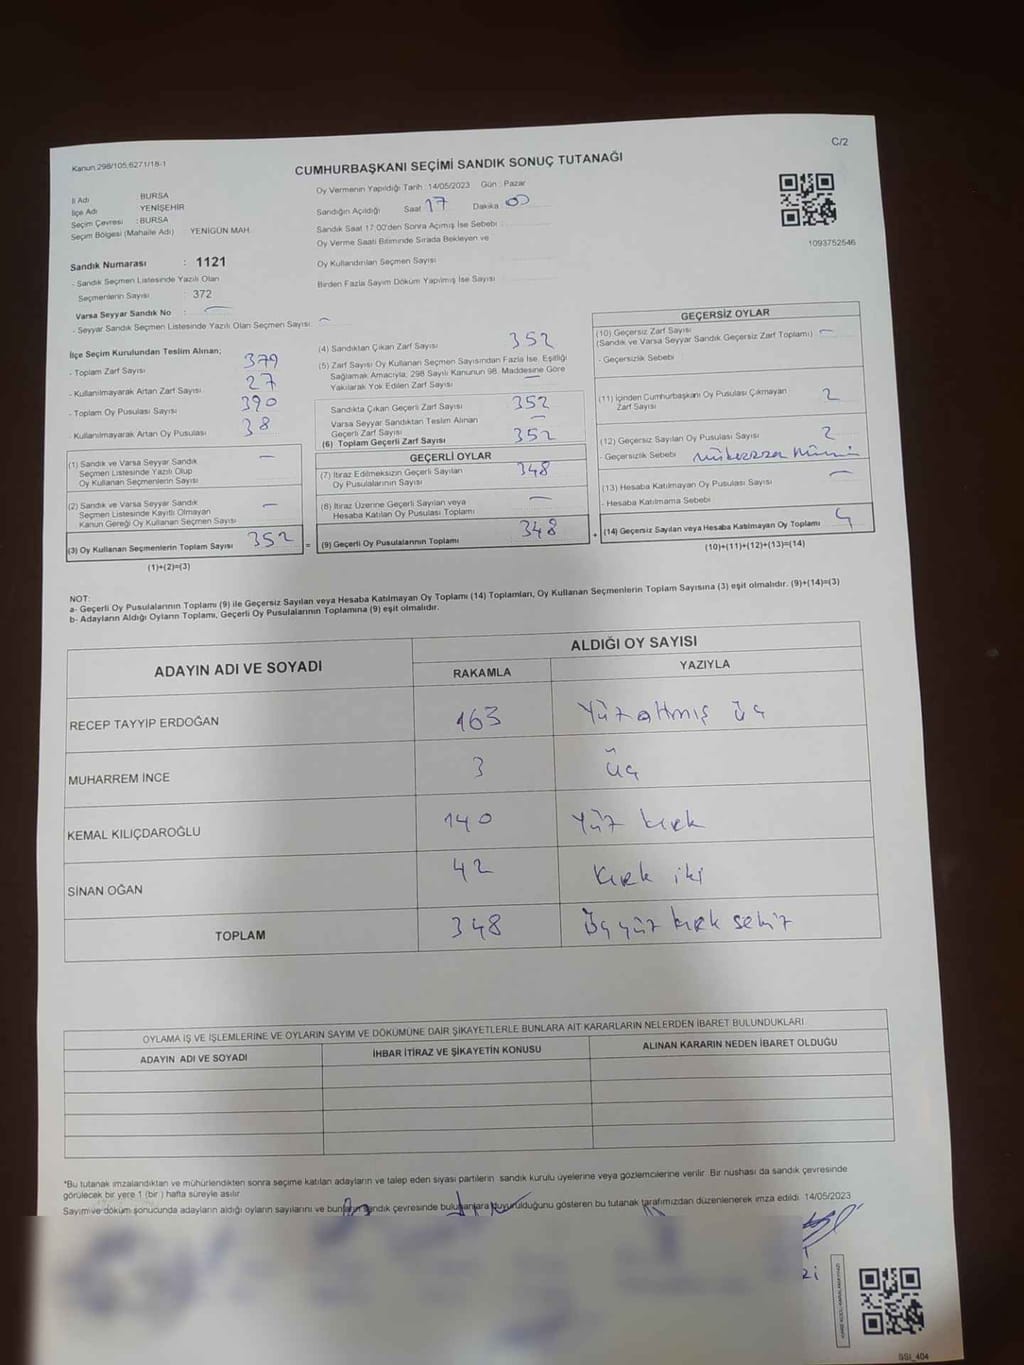 Kanun 298/105,6271/18-1
C/2
CUMHURBAŞKANI SEÇİMİ SANDIK SONUÇ TUTANAĞI
İl Adı BURSA
İlçe Adı YENİŞEHİR
Seçim Çevresi : BURSA
Seçim Bölgesi (Mahalle Adı) : YENİGÜN MAH.
Oy Vermenin Yapıldığı Tarih : 14/05/2023 Gün : Pazar
Sandığın Açıldığı Saat 17 Dakika 00
Sandık Saat 17:00'den Sonra Açımış İse Sebebi :
Oy Verme Saati Bitiminde Sırada Bekleyen ve
Oy Kullandırılan Seçmen Sayısı
Birden Fazla Sayım Döküm Yapılmış İse Sayısı
1093752546
Sandık Numarası : 1121
- Sandık Seçmen Listesinde Yazılı Olan
Seçmenlerin Sayısı : 372
Varsa Seyyar Sandık No : —
- Seyyar Sandık Seçmen Listesinde Yazılı Olan Seçmen Sayısı : —
İlçe Seçim Kurulundan Teslim Alınan;
- Toplam Zarf Sayısı 379
- Kullanılmayarak Artan Zarf Sayısı 27
- Toplam Oy Pusulası Sayısı 390
- Kullanılmayarak Artan Oy Pusulası 38
(1) Sandık ve Varsa Seyyar Sandık
Seçmen Listesinde Yazılı Olup
Oy Kullanan Seçmenlerin Sayısı —
(2) Sandık ve Varsa Seyyar Sandık
Seçmen Listesinde Kayıtlı Olmayan
Kanun Gereği Oy Kullanan Seçmen Sayısı —
(3) Oy Kullanan Seçmenlerin Toplam Sayısı 352
(1)+(2)=(3)
(4) Sandıktan Çıkan Zarf Sayısı 352
(5) Zarf Sayısı Oy Kullanan Seçmen Sayısından Fazla İse, Eşitliği
Sağlamak Amacıyla; 298 Sayılı Kanunun 98. Maddesine Göre
Yakılarak Yok Edilen Zarf Sayısı —
Sandıkta Çıkan Geçerli Zarf Sayısı 352
Varsa Seyyar Sandıktan Teslim Alınan
Geçerli Zarf Sayısı —
(6) Toplam Geçerli Zarf Sayısı 352
GEÇERLİ OYLAR
(7) İtiraz Edilmeksizin Geçerli Sayılan
Oy Pusulalarının Sayısı 348
(8) İtiraz Üzerine Geçerli Sayılan veya
Hesaba Katılan Oy Pusulası Toplamı —
= (9) Geçerli Oy Pusulalarının Toplamı 348
GEÇERSİZ OYLAR
(10) Geçersiz Zarf Sayısı —
(Sandık ve Varsa Seyyar Sandık Geçersiz Zarf Toplamı)
- Geçersizlik Sebebi
(11) İçinden Cumhurbaşkanı Oy Pusulası Çıkmayan
Zarf Sayısı 2
(12) Geçersiz Sayılan Oy Pusulası Sayısı 2
- Geçersizlik Sebebi
(13) Hesaba Katılmayan Oy Pusulası Sayısı —
- Hesaba Katılmama Sebebi
+ (14) Geçersiz Sayılan veya Hesaba Katılmayan Oy Toplamı 4
(10)+(11)+(12)+(13)=(14)
NOT:
a- Geçerli Oy Pusulalarının Toplamı (9) ile Geçersiz Sayılan veya Hesaba Katılmayan Oy Toplamı (14) Toplamları, Oy Kullanan Seçmenlerin Toplam Sayısına (3) eşit olmalıdır. (9)+(14)=(3)
b- Adayların Aldığı Oyların Toplamı, Geçerli Oy Pusulalarının Toplamına (9) eşit olmalıdır.
ADAYIN ADI VE SOYADI
ALDIĞI OY SAYISI
RAKAMLA YAZIYLA
RECEP TAYYİP ERDOĞAN 163 Yüzaltmış üç
MUHARREM İNCE 3 Üç
KEMAL KILIÇDAROĞLU 140 Yüz kırk
SİNAN OĞAN 42 Kırk iki
TOPLAM 348 Üçyüz kırk sekiz
OYLAMA İŞ VE İŞLEMLERİNE VE OYLARIN SAYIM VE DÖKÜMÜNE DAİR ŞİKAYETLERLE BUNLARA AİT KARARLARIN NELERDEN İBARET BULUNDUKLARI
ADAYIN ADI VE SOYADI İHBAR İTİRAZ VE ŞİKAYETİN KONUSU ALINAN KARARIN NEDEN İBARET OLDUĞU
*Bu tutanak imzalandıktan ve mühürlendikten sonra seçime katılan adayların ve talep eden siyasi partilerin sandık kurulu üyelerine veya gözlemcilerine verilir. Bir nüshası da sandık çevresinde
görülecek bir yere 1 (bir ) hafta süreyle asılır.
Sayım ve döküm sonucunda adayların aldığı oyların sayılarını ve bunların sandık çevresinde bulunanlara duyurulduğunu gösteren bu tutanak tarafımızdan düzenlenerek imza edildi. 14/05/2023
SSİ_404